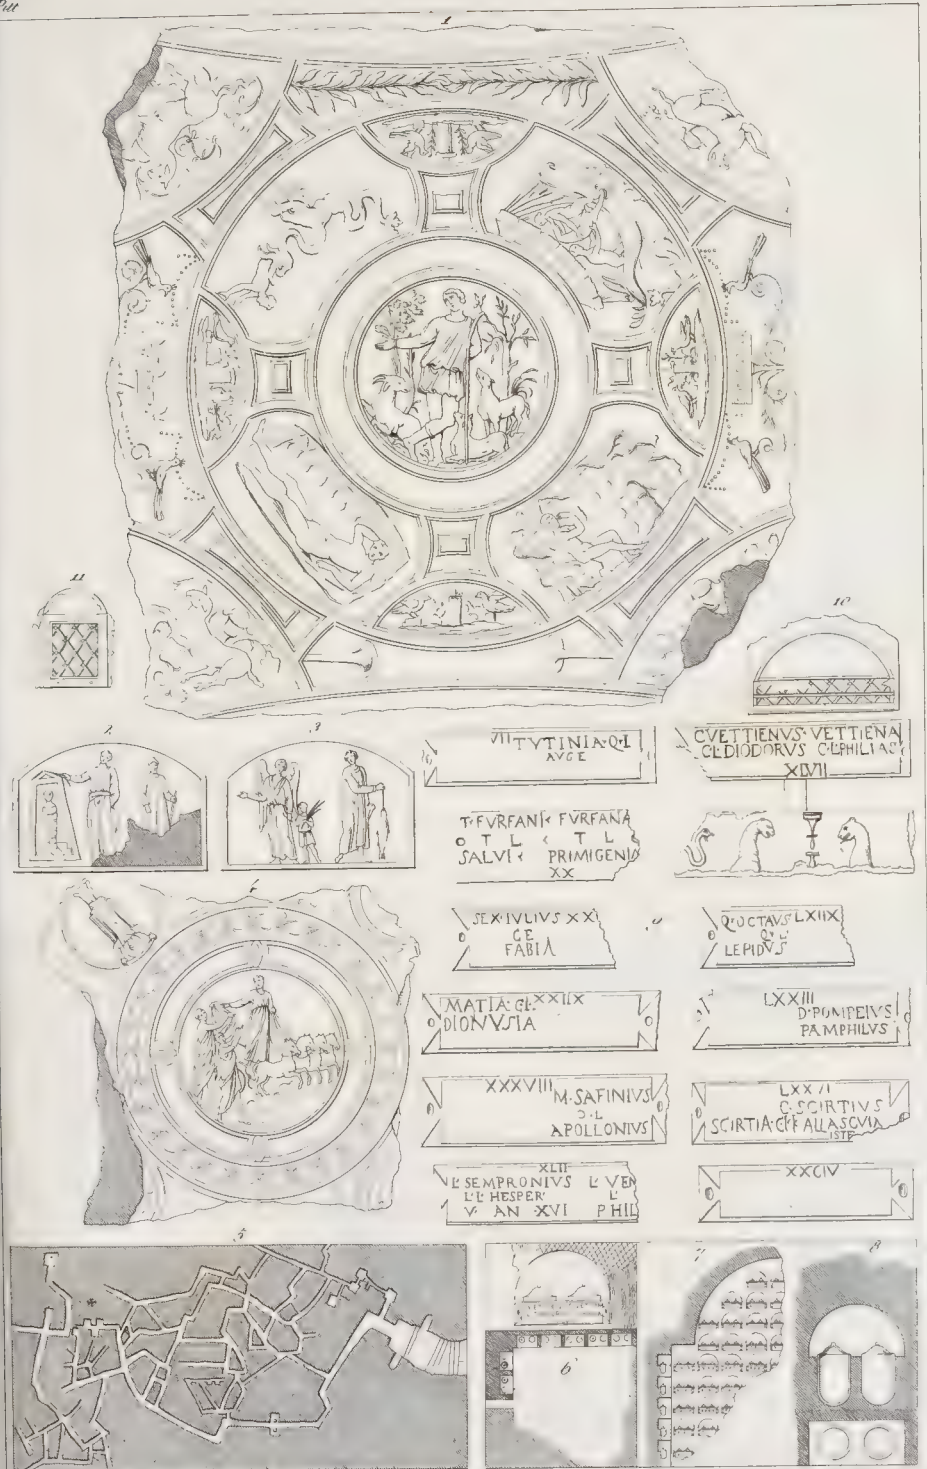 Pitt
1
11
10
2
3
VII TVTINIA·Q·L
AVGE
CVETTIENVS·VETTIENA
CL·DIODORVS C·L·PHILIAS
XLVII
T·FVRFANI FVRFANA
O T L T L
SALVI PRIMIGENIA
XX
4
9
SEX·IVLIVS XXI
GE
FABIA
Q·OCTAVS LXIIX
Q·L
LEPIDVS
MATIA·CL·XXIIX
DIONVSIA
LXXIII
D·POMPEIVS
PAMPHILVS
XXXVIII M·SAFINIVS
Ɔ·L
APOLLONIVS
C·SCIRTIVS
SCIRTIA
ISTE
XLII
L·SEMPRONIVS L·VEN
L·L·HESPER· L·
V· AN·XVI PHIL
XXCIV
5
6
7
8